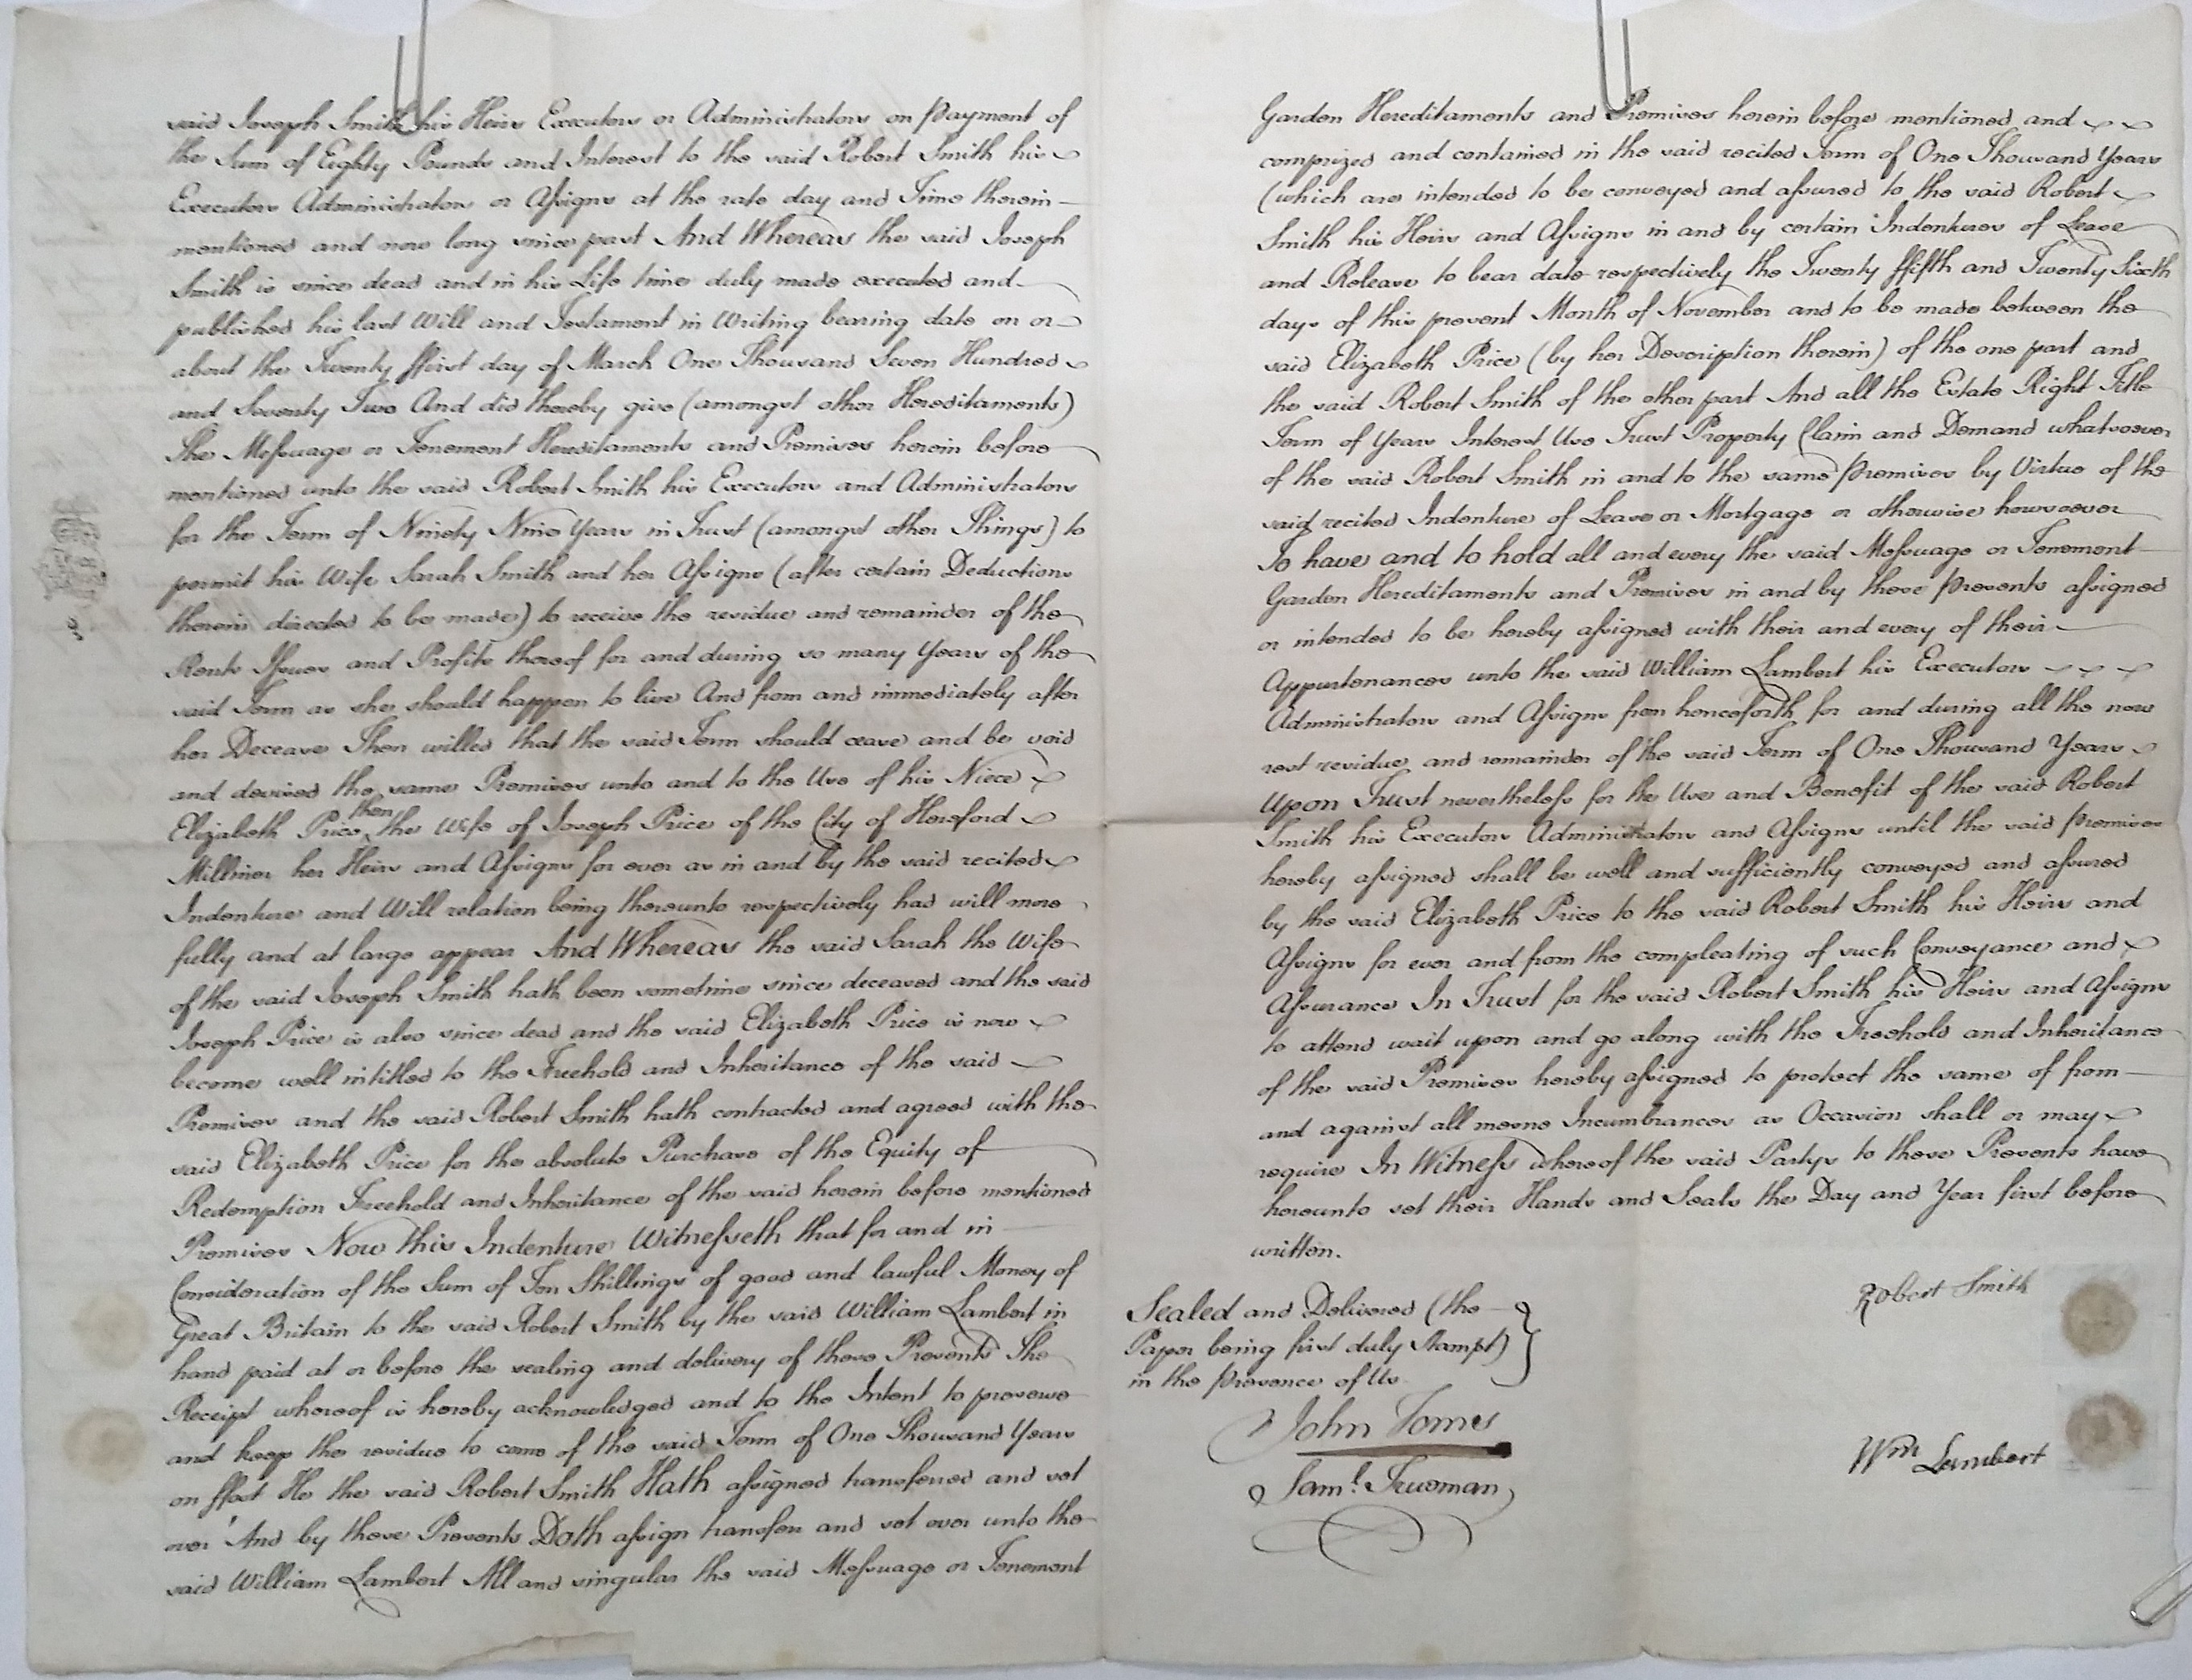 said Joseph Smith his Heirs Executors or Administrators on Payment of
the Sum of Eighty Pounds and Interest to the said Robert Smith his
Executors Administrators or Assigns at the rate day and Time therein
mentioned and now long since past And Whereas the said Joseph
Smith is since dead and in his Life time duly made executed and
published his last Will and Testament in Writing bearing date on or
about the Twenty ffirst day of March One Thousand Seven Hundred
and Seventy Two And did thereby give (amongst other Hereditaments)
The Messuage or Tenement Hereditaments and Premises herein before
mentioned unto the said Robert Smith his Executors and Administrators
for the Term of Ninety Nine Years in Trust (amongst other Things) to
permit his Wife Sarah Smith and her Assigns (after certain Deductions
therein directed to be made) to receive the residue and remainder of the
Rents Issues and Profits thereof for and during so many Years of the
said Term as she should happen to live And from and immediately after
her Decease Then willed that the said Term should cease and be void
and devised the same Premises unto and to the Use of his Niece
Elizabeth Price then the Wife of Joseph Price of the City of Hereford
Milliner her Heirs and Assigns for ever as in and by the said recited
Indenture and Will relation being thereunto respectively had will more
fully and at large appear And Whereas the said Sarah the Wife
of the said Joseph Smith hath been sometime since deceased and the said
Joseph Price is also since dead and the said Elizabeth Price is now
become well intitled to the Freehold and Inheritance of the said
Premises and the said Robert Smith hath contracted and agreed with the
said Elizabeth Price for the absolute Purchase of the Equity of
Redemption Freehold and Inheritance of the said herein before mentioned
Premises Now this Indenture Witnesseth that for and in
Consideration of the Sum of Ten Shillings of good and lawful Money of
Great Britain to the said Robert Smith by the said William Lambert in
hand paid at or before the sealing and delivery of these Presents The
Receipt whereof is hereby acknowledged and to the Intent to preserve
and keep the residue to come of the said Term of One Thousand Years
on ffoot He the said Robert Smith Hath assigned transferred and set
over And by these Presents Doth assign transfer and set over unto the
said William Lambert All and singular the said Messuage or Tenement
Garden Hereditaments and Premises herein before mentioned and
comprized and contained in the said recited Term of One Thousand Years
(which are intended to be conveyed and assured to the said Robert
Smith his Heirs and Assigns in and by certain Indentures of Lease
and Release to bear date respectively the Twenty ffifth and Twenty Sixth
days of this present Month of November and to be made between the
said Elizabeth Price (by her Description therein) of the one part and
the said Robert Smith of the other part And all the Estate Right Title
Term of Years Interest Use Trust Property Claim and Demand whatsoever
of the said Robert Smith in and to the same Premises by Virtue of the
said recited Indenture of Lease or Mortgage or otherwise howsoever
To have and to hold all and every the said Messuage or Tenement
Garden Hereditaments and Premises in and by these Presents assigned
or intended to be hereby assigned with their and every of their
Appurtenances unto the said William Lambert his Executors
Administrators and Assigns from henceforth for and during all the now
rest residue and remainder of the said Term of One Thousand Years
Upon Trust nevertheless for the Use and Benefit of the said Robert
Smith his Executors Administrators and Assigns until the said Premises
hereby assigned shall be well and sufficiently conveyed and assured
by the said Elizabeth Price to the said Robert Smith his Heirs and
Assigns for ever and from the compleating of such Conveyance and
Assurance In Trust for the said Robert Smith his Heirs and Assigns
to attend wait upon and go along with the Freehold and Inheritance
of the said Premises hereby assigned to protect the same of from
and against all mesne Incumbrances as Occasion shall or may
require In Witness whereof the said Partys to these Presents have
hereunto set their Hands and Seals the Day and Year first before
written.
Sealed and Delivered (the
Paper being first duly Stampt)
in the Presence of Us
John Tomes
Saml. Trueman
Robert Smith
Wm Lambert